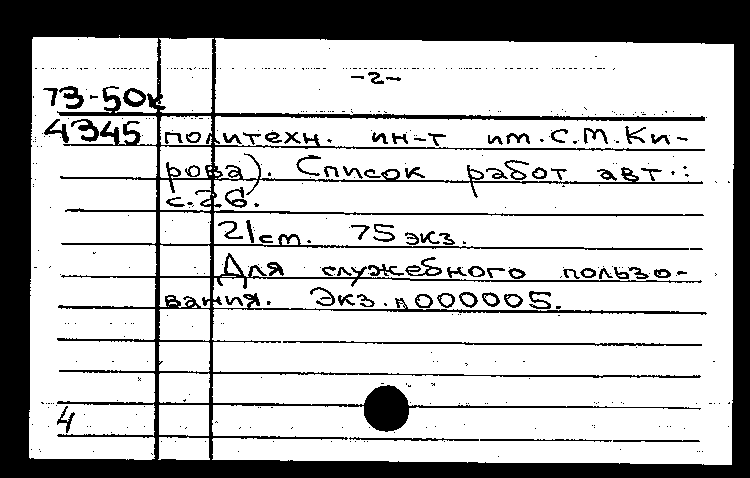 -2-
73-50к
4345 политехн. ин-т им. С.М. Ки-
рова). Список работ авт.:
с. 26.
21 см. 75 экз.
Для служебного пользо-
вания. Экз. н000005.
4